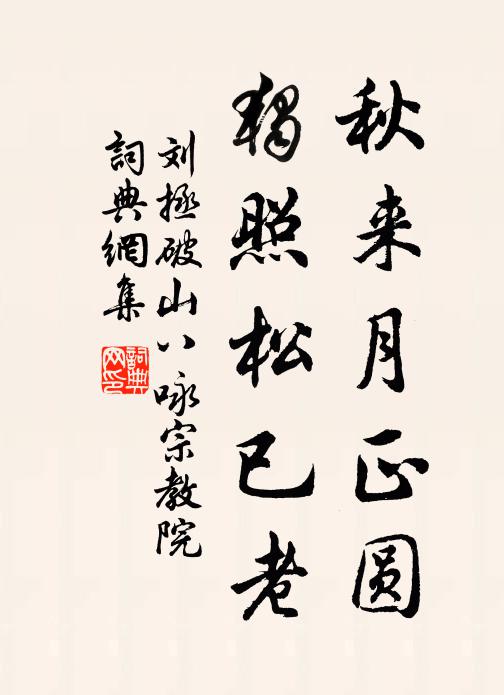 秋来月正圆
獨照松已老
刘拯破山八咏宗教院
詞典網集
詞典网印